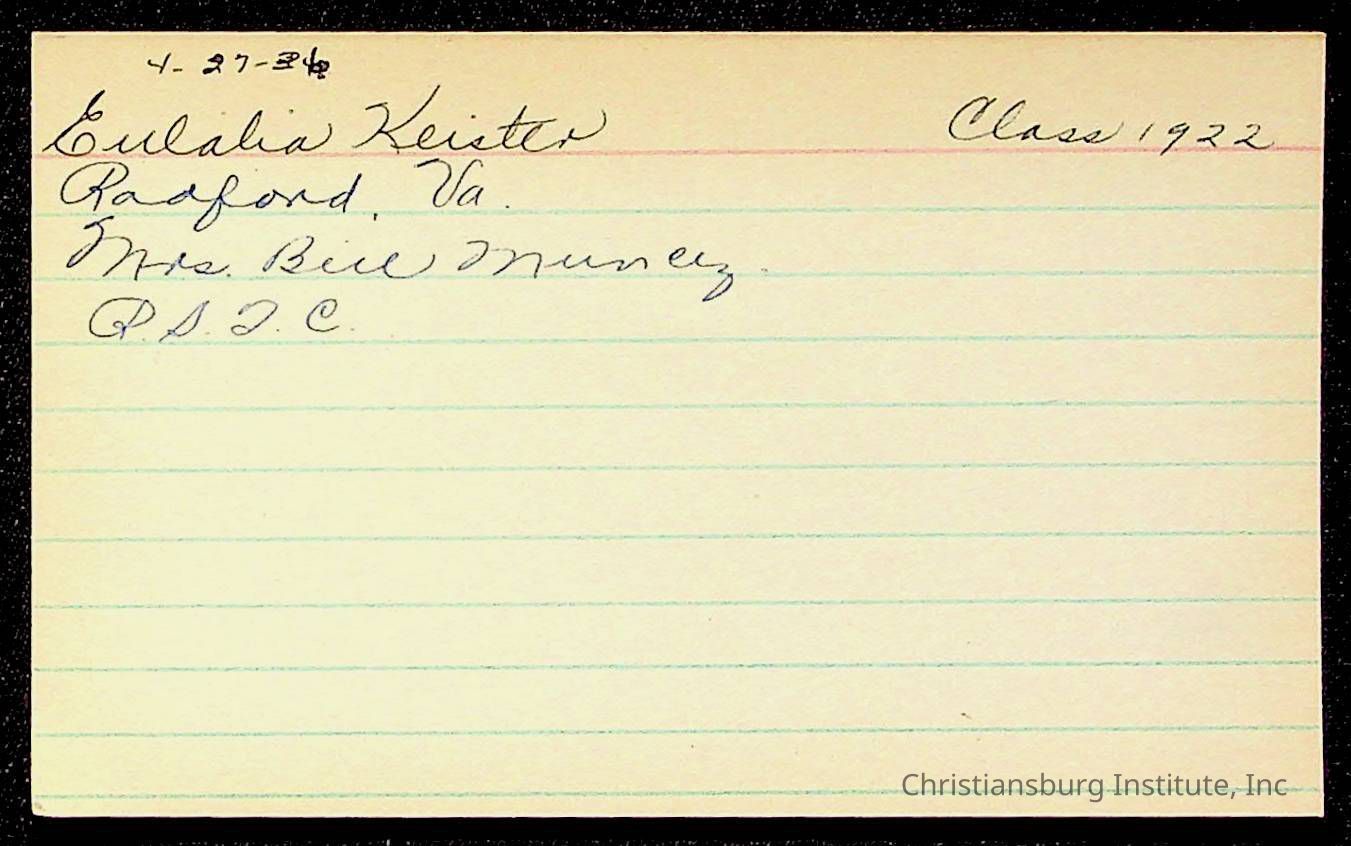 4-27-36
Eulalia Keister Class 1922
Radford, Va.
Mrs. Bill Muncey.
R.S.T.C.
Christiansburg Institute, Inc